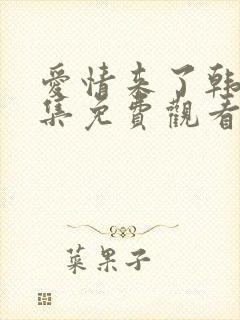 愛情来了韩
集免費觀看
菜果子